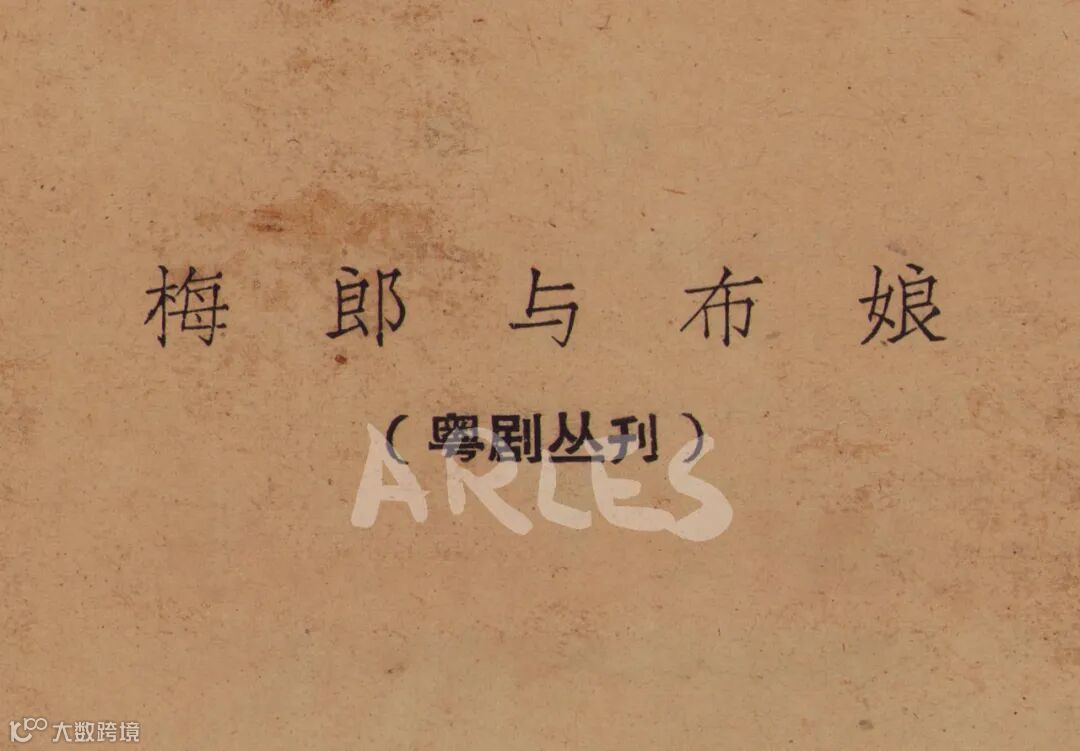 梅郎与布娘
（粤剧丛刊）
ARLES
大数跨境